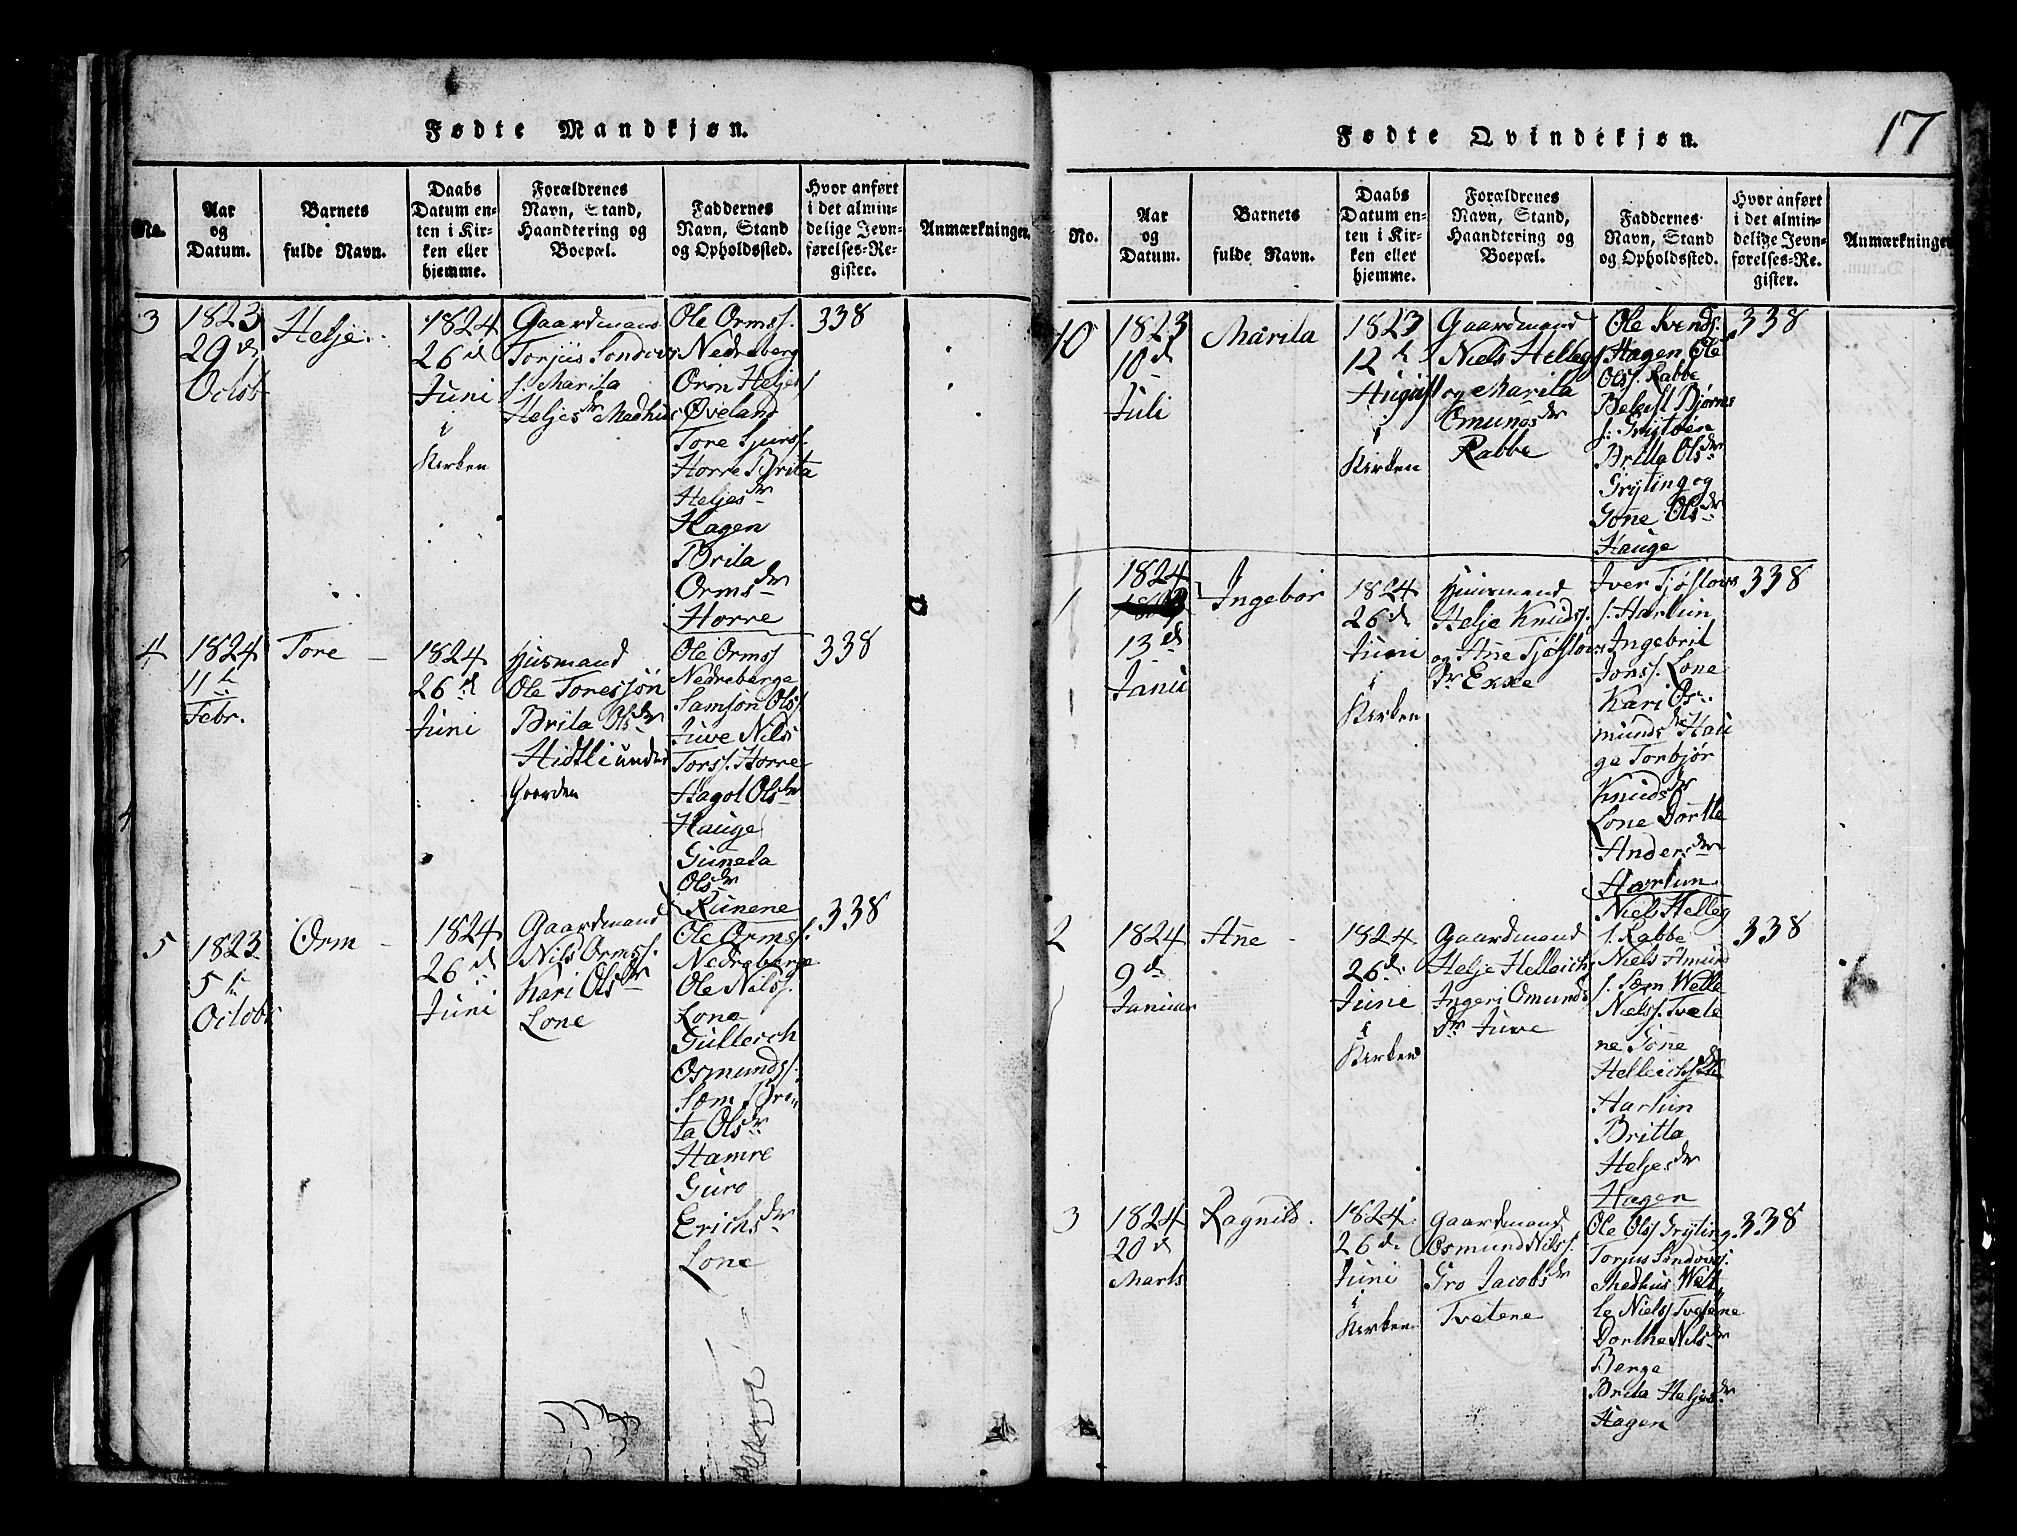 Fødte Mandkjøn.
No.
Aar
og
Datum.
Barnets
fulde Navn.
Daabs
Datum en-
ten i Kir-
ken eller
hjemme.
Forældrenes
Navn, Stand,
Haandtering og
Boepæl.
Faddernes
Navn, Stand
og Opholdssted.
Hvor anført
i det almin-
delige Jevn-
førelses-Re-
gister.
Anmærkninger.
3
1823
29 de
Octob
Helje
1824
26 d
Juni
i
Kirken
Gaardmand
Torjus Sondovs
s. Marita
Heljes dr Medhus
Ole Ormss.
Nedreberg
Orm Heljes
Øveland
Tore Sjurss.
Horre Brita
Heljes dr
Hagen
Brita
Orms dr
Horre
338
4
1824
11 t
Febr.
Tore
1824
26 d
Juni
Huusmand
Ole Toresjøn
Brita Ols dr
Hidtli under
Gaarden
Ole Ormss
Nedreberge
Samson Olss
Juve Nils
Torss. Horre
Hagol Ols dr
Hauge
Gunela
Ols dr
Runene
338
5
1823
5 t
Octobr
Orm
1824
26 d
Juni
Gaardmand
Nils Ormss.
Kari Ols dr
Lone
Ole Ormss.
Nedreberge
Ole Nilss.
Lone
Gullerich
Osmundss.
Sæm Bri-
ta Ols dr
Hamre
Guro
Erichs dr
Lone
338
17
Fødte Qvindekjøn.
No.
Aar
og
Datum.
Barnets
fulde Navn.
Daabs
Datum en-
ten i Kir-
ken eller
hjemme.
Forældrenes
Navn, Stand,
Haandtering og
Boepæl.
Faddernes
Navn, Stand
og Opholdssted.
Hvor anført
i det almin-
delige Jevn-
førelses-Re-
gister.
Anmærkninger
10
1823
10 d
Juli
Marita
1823
12 t
August
i
Kirken
Gaardmand
Niels Helleg
og Marita
Omunds dr
Rabbe
Ole Svends.
Hagen Ole
Olss. Rabbe
Bjørns
s. Grytøen
Britta Ols dr
Gryting og
Gone Ols dr
Hauge
338
1
1824
13 d
Janu
Ingebor
1824
26 d
Juni
i
Kirken
Huusmand
Helje Knudss.
og Ane Tjøstovs
dr Exse
Iver Tjøstovs
s. Aarhun
Ingebrit
Jonss. Lone
Kari Os-
munds dr Hau
ge Torbjør
Knuds dr
Lone Dorthe
Anders dr
Aarhun
338
2
1824
9 d
Januar
Ane
1824
26 d
Juni
i
Kirken
Gaardmand
Helje Helleichs
Ingeri Omunds
dr Juve
Niels Helleg
s. Rabbe
Niels Amund
s. Sæm Wette
Nielss. Tvete
ne Gone
Helleichs dr
Aarhun
Britta
Heljes dr
Hagen
338
3
1824
20 d
Marts
Ragnild.
1824
26 d
Juni
i
Kirken
Gaardmand
Osmund Nilss.
Gro Jacobs dr
Tvetene
Ole Olss Gryting
Torjus Sondovs.
Medhus Wet
le Nielss Tvetene
Dorthe Nils dr
Berge
Brita Heljes dr
Hagen
338